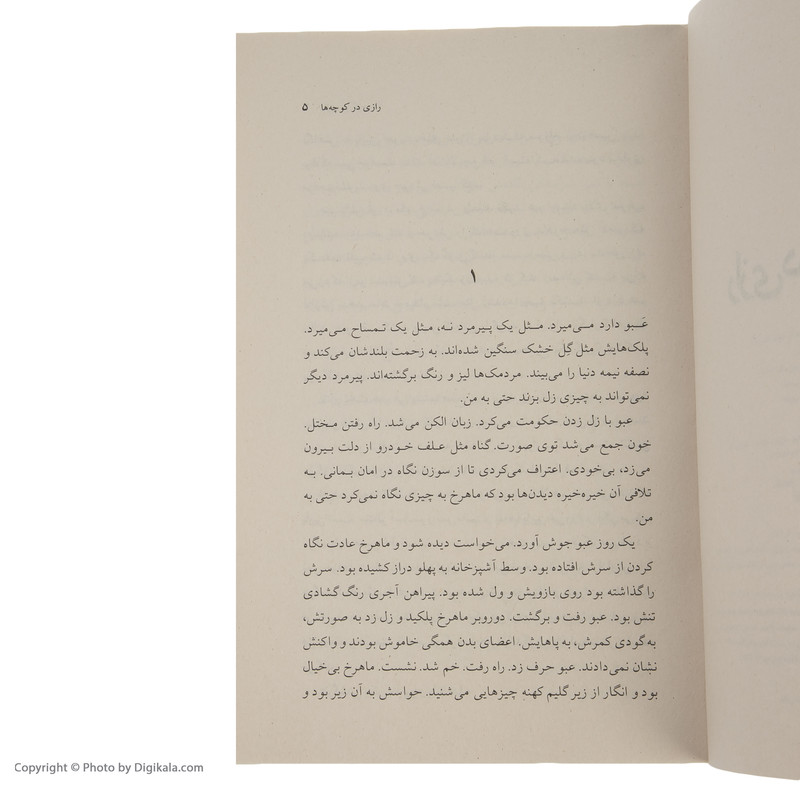 رازی در کوچه‌ها ۵
۱
عَبو دارد می‌میرد. مثل یک پیرمرد نه، مثل یک تمساح می‌میرد.
پلک‌هایش مثل گِل خشک سنگین شده‌اند. به زحمت بلندشان می‌کند و
نصفه نیمه دنیا را می‌بیند. مردمک‌ها لیز و رنگ برگشته‌اند. پیرمرد دیگر
نمی‌تواند به چیزی زل بزند حتی به من.
عبو با زل زدن حکومت می‌کرد. زبان الکن می‌شد. راه رفتن مختل.
خون جمع می‌شد توی صورت. گناه مثل علف خودرو از دلت بیرون
می‌زد، بی‌خودی. اعتراف می‌کردی تا از سوزن نگاه در امان بمانی. به
تلافی آن خیره‌خیره دیدن‌ها بود که ماهرخ به چیزی نگاه نمی‌کرد حتی به
من.
یک روز عبو جوش آورد. می‌خواست دیده شود و ماهرخ عادت نگاه
کردن از سرش افتاده بود. وسط آشپزخانه به پهلو دراز کشیده بود. سرش
را گذاشته بود روی بازویش و ول شده بود. پیراهن آجری رنگ گشادی
تنش بود. عبو رفت و برگشت. دوروبر ماهرخ پلکید و زل زد به صورتش،
به گودی کمرش، به پاهایش. اعضای بدن همگی خاموش بودند و واکنش
نشان نمی‌دادند. عبو حرف زد. راه رفت. خم شد. نشست. ماهرخ بی‌خیال
بود و انگار از زیر گلیم کهنه چیزهایی می‌شنید. حواسش به آن زیر بود و
Copyright © Photo by Digikala.com